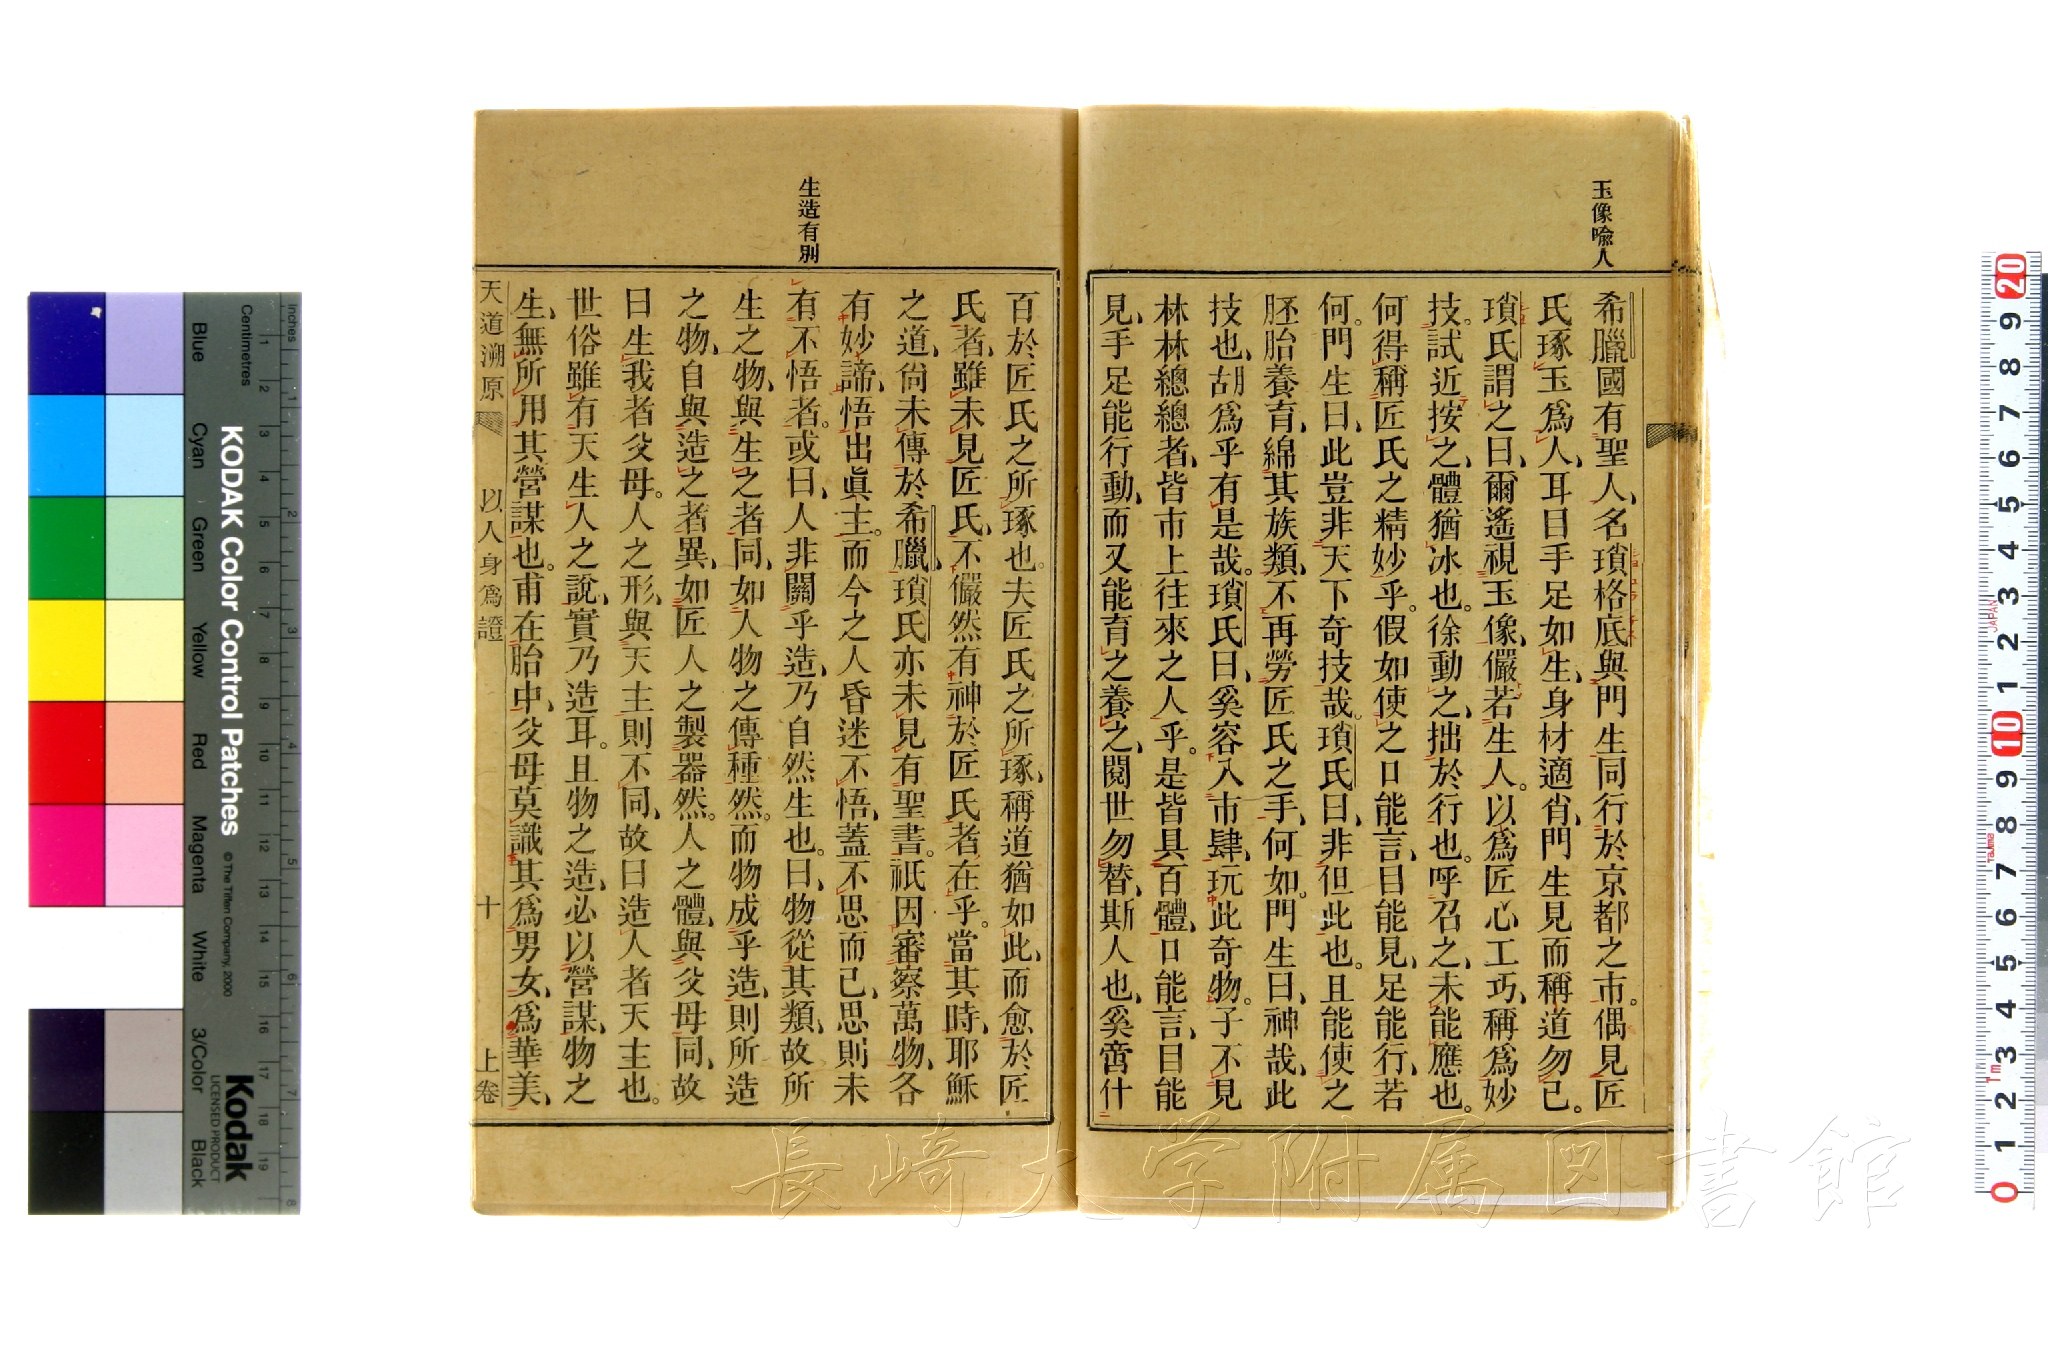 玉像喻人
希臘國有聖人、名瑣格底與門生同行於京都之市。偶見匠
氏琢玉爲人、耳目手足如生、身材適肖、門生見而稱道勿已。
瑣氏謂之曰、爾遙視玉像、儼若生人。以爲匠心工巧、稱爲妙
技。試近按之、體猶冰也。徐動之、拙於行也。呼召之、未能應也。
何得稱匠氏之精妙乎。假如使之口能言、目能見、足能行、若
何。門生曰、此豈非天下奇技哉。瑣氏曰、非但此也。且能使之
胚胎養育、綿其族類、不再勞匠氏之手、何如。門生曰、神哉、此
技也、胡爲乎有是哉。瑣氏曰、奚容入市肆、玩此奇物。子不見
林林總總者、皆市上往來之人乎。是皆具百體、口能言、目能
見、手足能行動、而又能育之養之、閱世勿替、斯人也、奚啻什
生造有別
百於匠氏之所琢也。夫匠氏之所琢、稱道猶如此、而愈於匠
氏者、雖未見匠氏、不儼然有神於匠氏者在乎。當其時、耶穌
之道、尙未傳於希臘、瑣氏亦未見有聖書。祇因審察萬物、各
有妙諦、悟出眞主。而今之人昏迷不悟、蓋不思而已、思則未
有不悟者。或曰、人非關乎造、乃自然生也。曰、物從其類、故所
生之物、與生之者同、如人物之傳種然。而物成乎造、則所造
之物、自與造之者異、如匠人之製器然。人之體、與父母同、故
曰生我者父母。人之形、與天主則不同、故曰造人者天主也。
世俗雖有天生人之說、實乃造耳。且物之造、必以營謀、物之
生、無所用其營謀也。甫在胎中、父母莫識其爲男女、爲華美、
天道溯原 以人身爲證 十 上卷
KODAK Color Control Patches
© The Tiffen Company, 2000
Kodak
LICENSED PRODUCT
Inches
Centimetres
Blue
Cyan
Green
Yellow
Red
Magenta
White
3/Color
Black
JAPAN
Tajima
長崎大学附属図書館